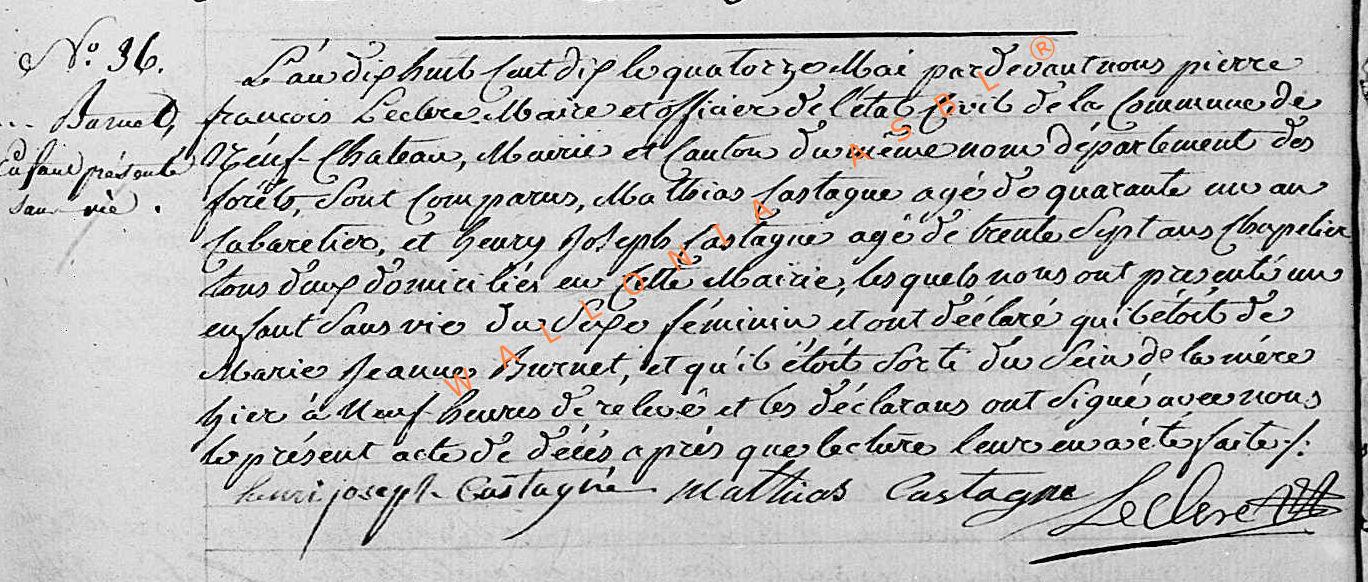 N.º 36.
Burnet,
Enfant présenté
sans vie.
L'an dix huit Cent dix le quatorze Mai pardevant nous pierre
françois Leclere Maire et officier de l'état Civil de la Commune de
Neuf-Chateau, Mairie et Canton du même nom département des
forêts, sont comparus, Mathias Castagne agé de quarante un an
Cabaretier, et henry Joseph Castagne agé de trente sept ans Chapelier
tous deux domiciliés en Cette Mairie, lesquels nous ont présenté un
enfant sans vie du sexe féminin et ont déclaré qu'il étoit de
Marie Jeanne Burnet, et qu'il étoit sorti du sein de la mére
hier à Neuf heures de relevé et les déclarans ont signé avec nous
le présent acte de décés après que lecture leur en a été faite ./.
henri joseph Castagne Mathias Castagne Leclere
WALLONIA ASBL ®